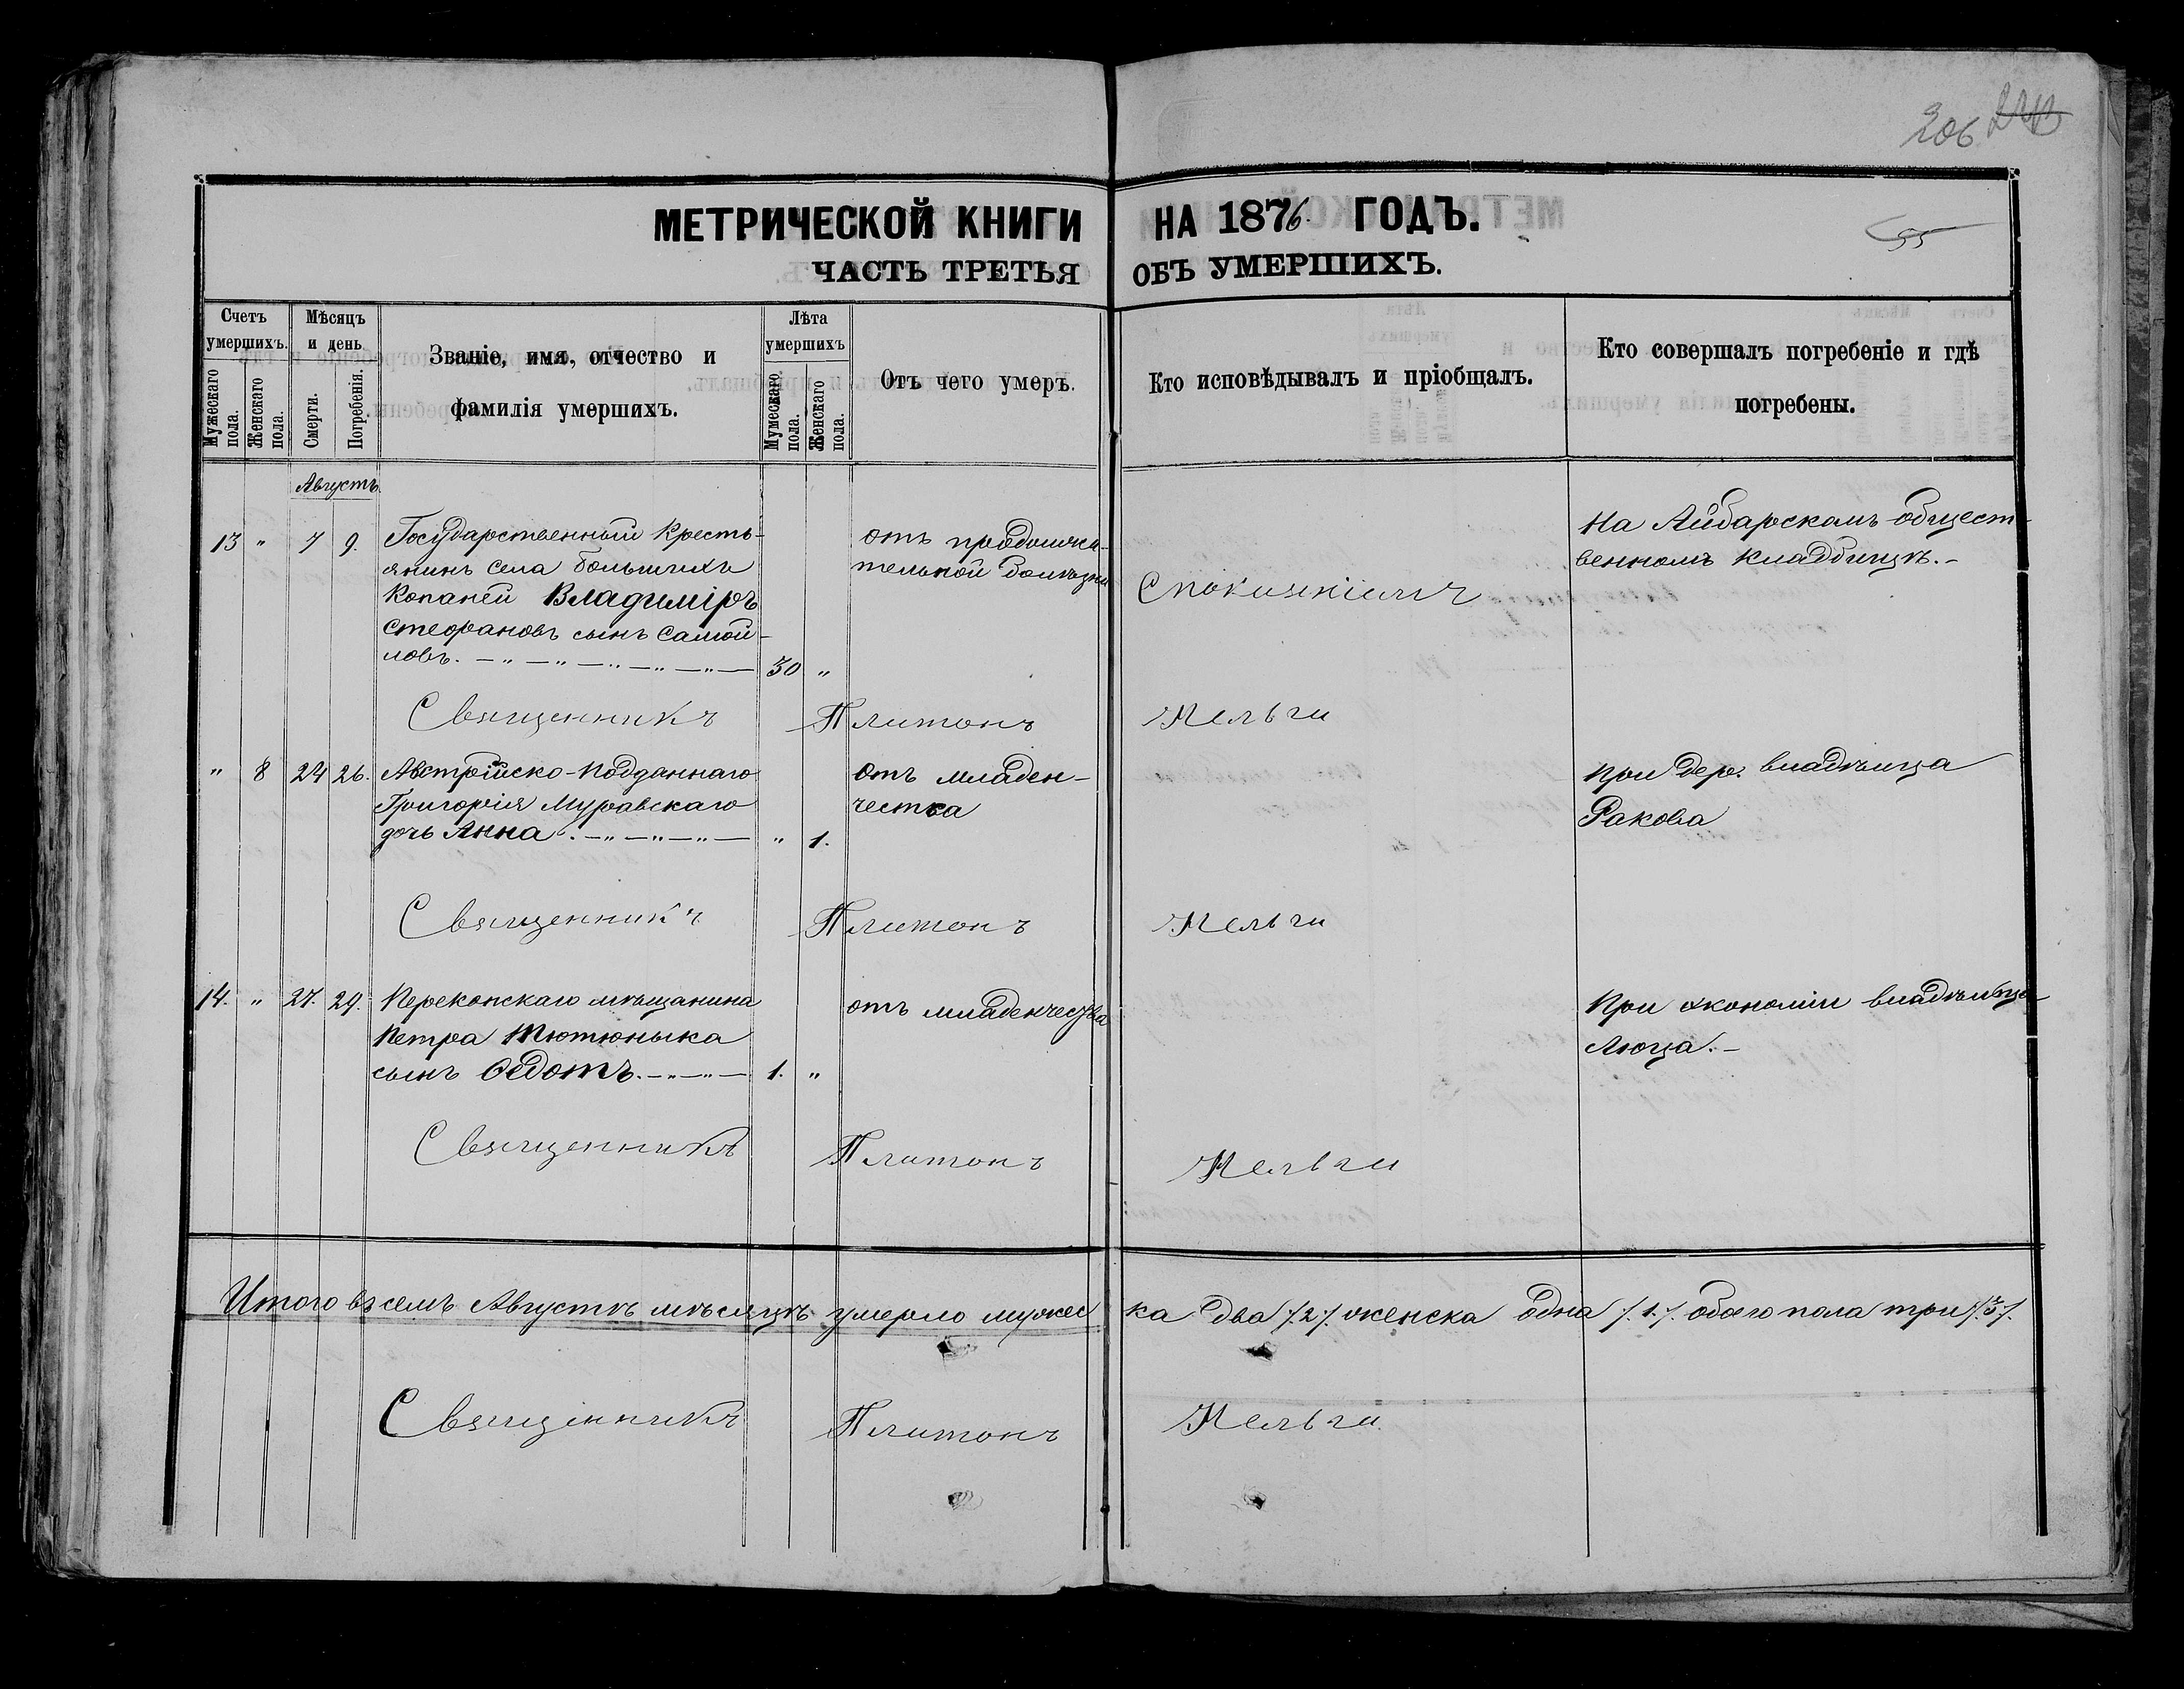 206
МЕТРИЧЕСКОЙ КНИГИ НА 1876 ГОДЪ.
55
ЧАСТЬ ТРЕТЬЯ ОБЪ УМЕРШИХЪ.
Счетъ умершихъ.
Мужескаго пола.
Женскаго пола.
Мѣсяцъ и день
Смерти.
Погребенія.
Званіе, имя, отчество и
фамилія умершихъ.
Лѣта умершихъ
Мужескаго пола.
Женскаго пола.
Отъ чего умеръ.
Кто исповѣдывалъ и пріобщалъ.
Кто совершалъ погребеніе и гдѣ
погребены.
Августъ
13 " 7 9. Государственный Кресть-
янинъ села Большихъ
Копаней Владиміръ
Стефановъ сынъ Самой-
ловъ. — " — " — " — " — " — 30 "
отъ продолжи-
тельной болѣзни
На Айбарскомъ общест-
венномъ кладбищѣ. -
Священникъ Платонъ
" 8 24 26. Австрійско-Подданнаго
Григорія Муравскаго
дочь Анна. — " — " — " — " 1.
отъ младен-
чества
при дер. владѣльца
Ракова
Священникъ Платонъ
14. " 27. 29. Перекопскаго мѣщанина
Петра Тютюныка
сынъ Ѳедотъ. — " — " — 1. "
отъ младенчества
При экономіи владѣльца
Люца. -
Священникъ Платонъ
Итого въ семъ Августѣ мѣсяцѣ умерло мужес ка два /.2/. женска одна /.1./. обоего пола три /.3/.
Священникъ Платонъ